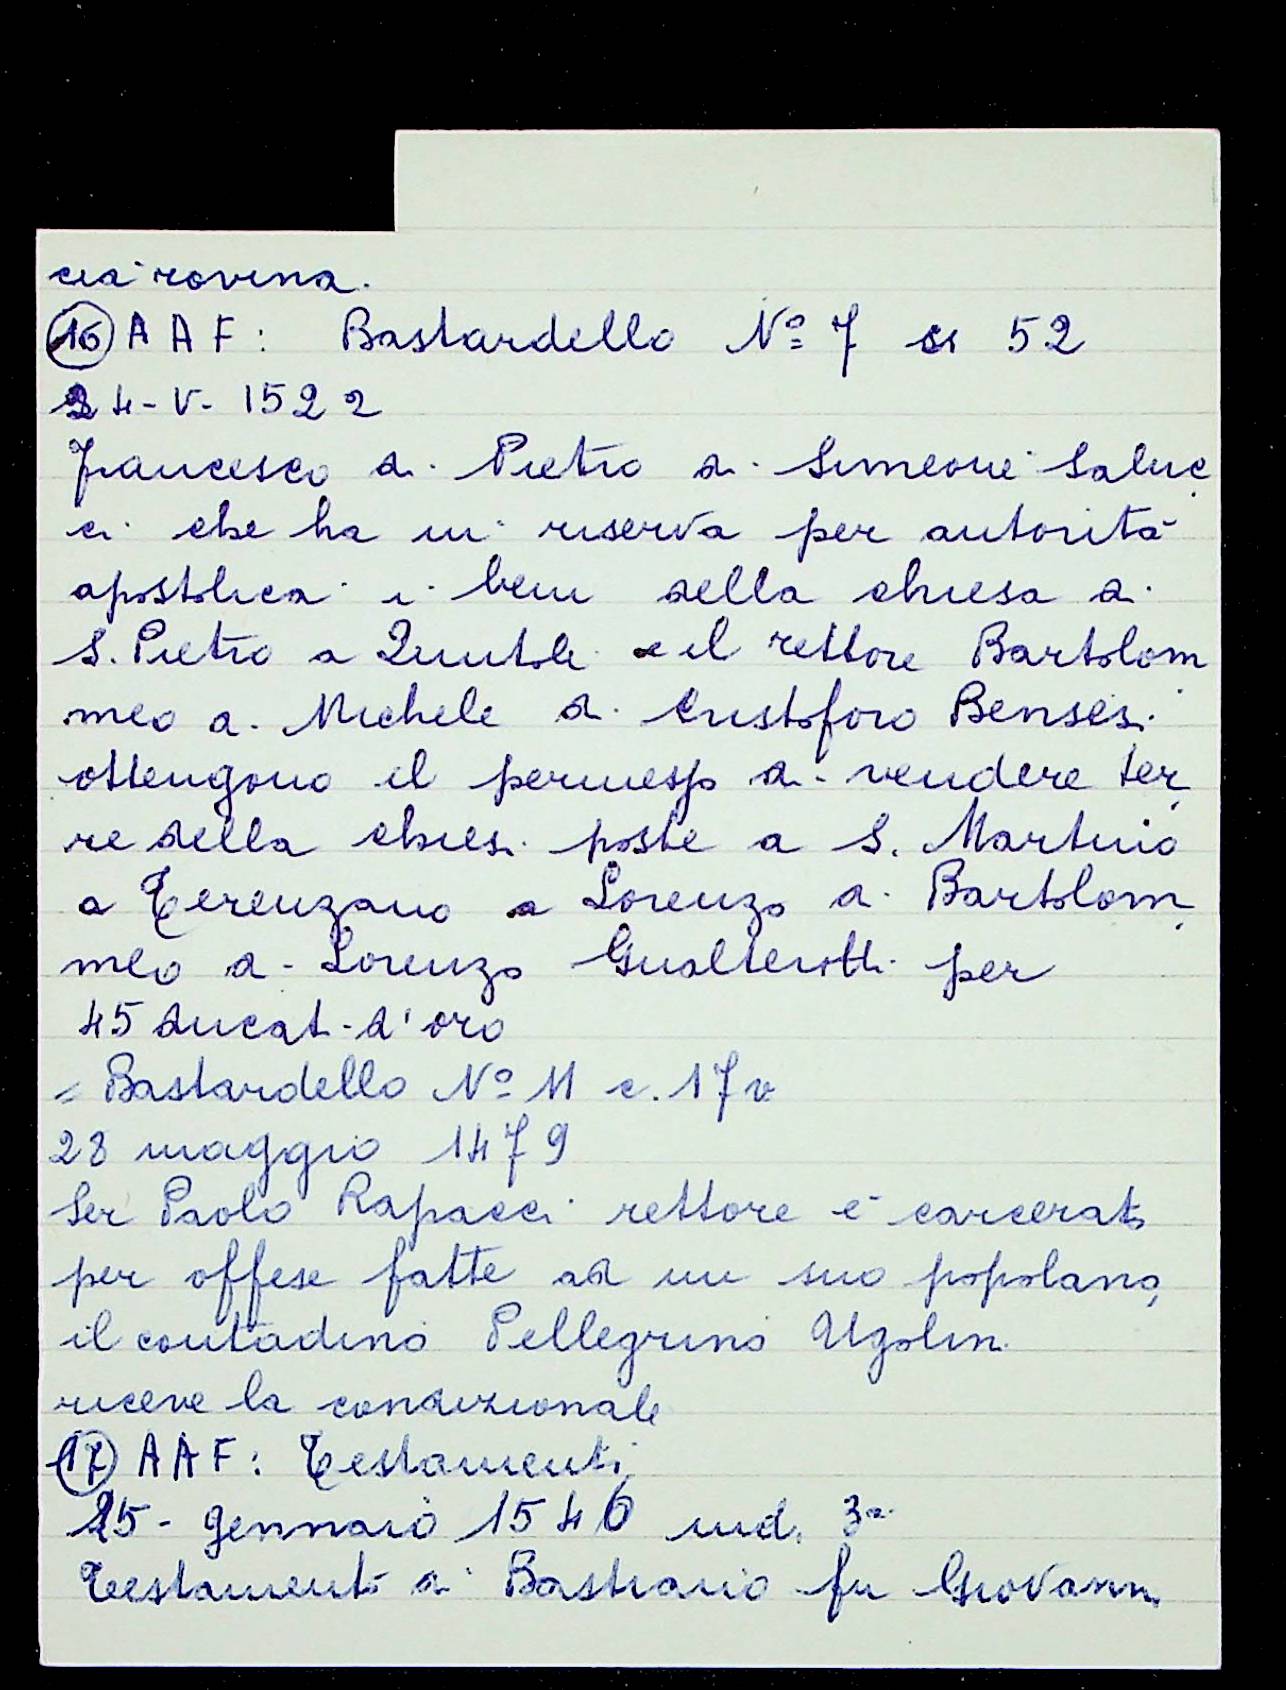 cia rovina.
16 A A F: Bastardello Nº 7 cc 52
24-V-1522
Francesco di Pietro di Simeone Saluc
ci che ha in riserva per autorità
apostolica i beni della chiesa di
S. Pietro a Quintole e il rettore Bartolom
meo di Michele di Cristoforo Bensesi
ottengono il permesso di vendere ter
re della chiesa poste a S. Martino
a Terenzano a Lorenzo di Bartolom
meo di Lorenzo Gualterotti per
45 ducati d'oro
= Bastardello Nº 11 c. 17v
28 maggio 1479
Ser Paolo Rapacci rettore è carcerato
per offese fatte ad un suo popolano,
il contadino Pellegrino Ugolini
riceve la condizionale
17 A A F: Testamenti
25 - gennaio 1546 ind. 3ª
Testamento di Bastiano fu Giovanni